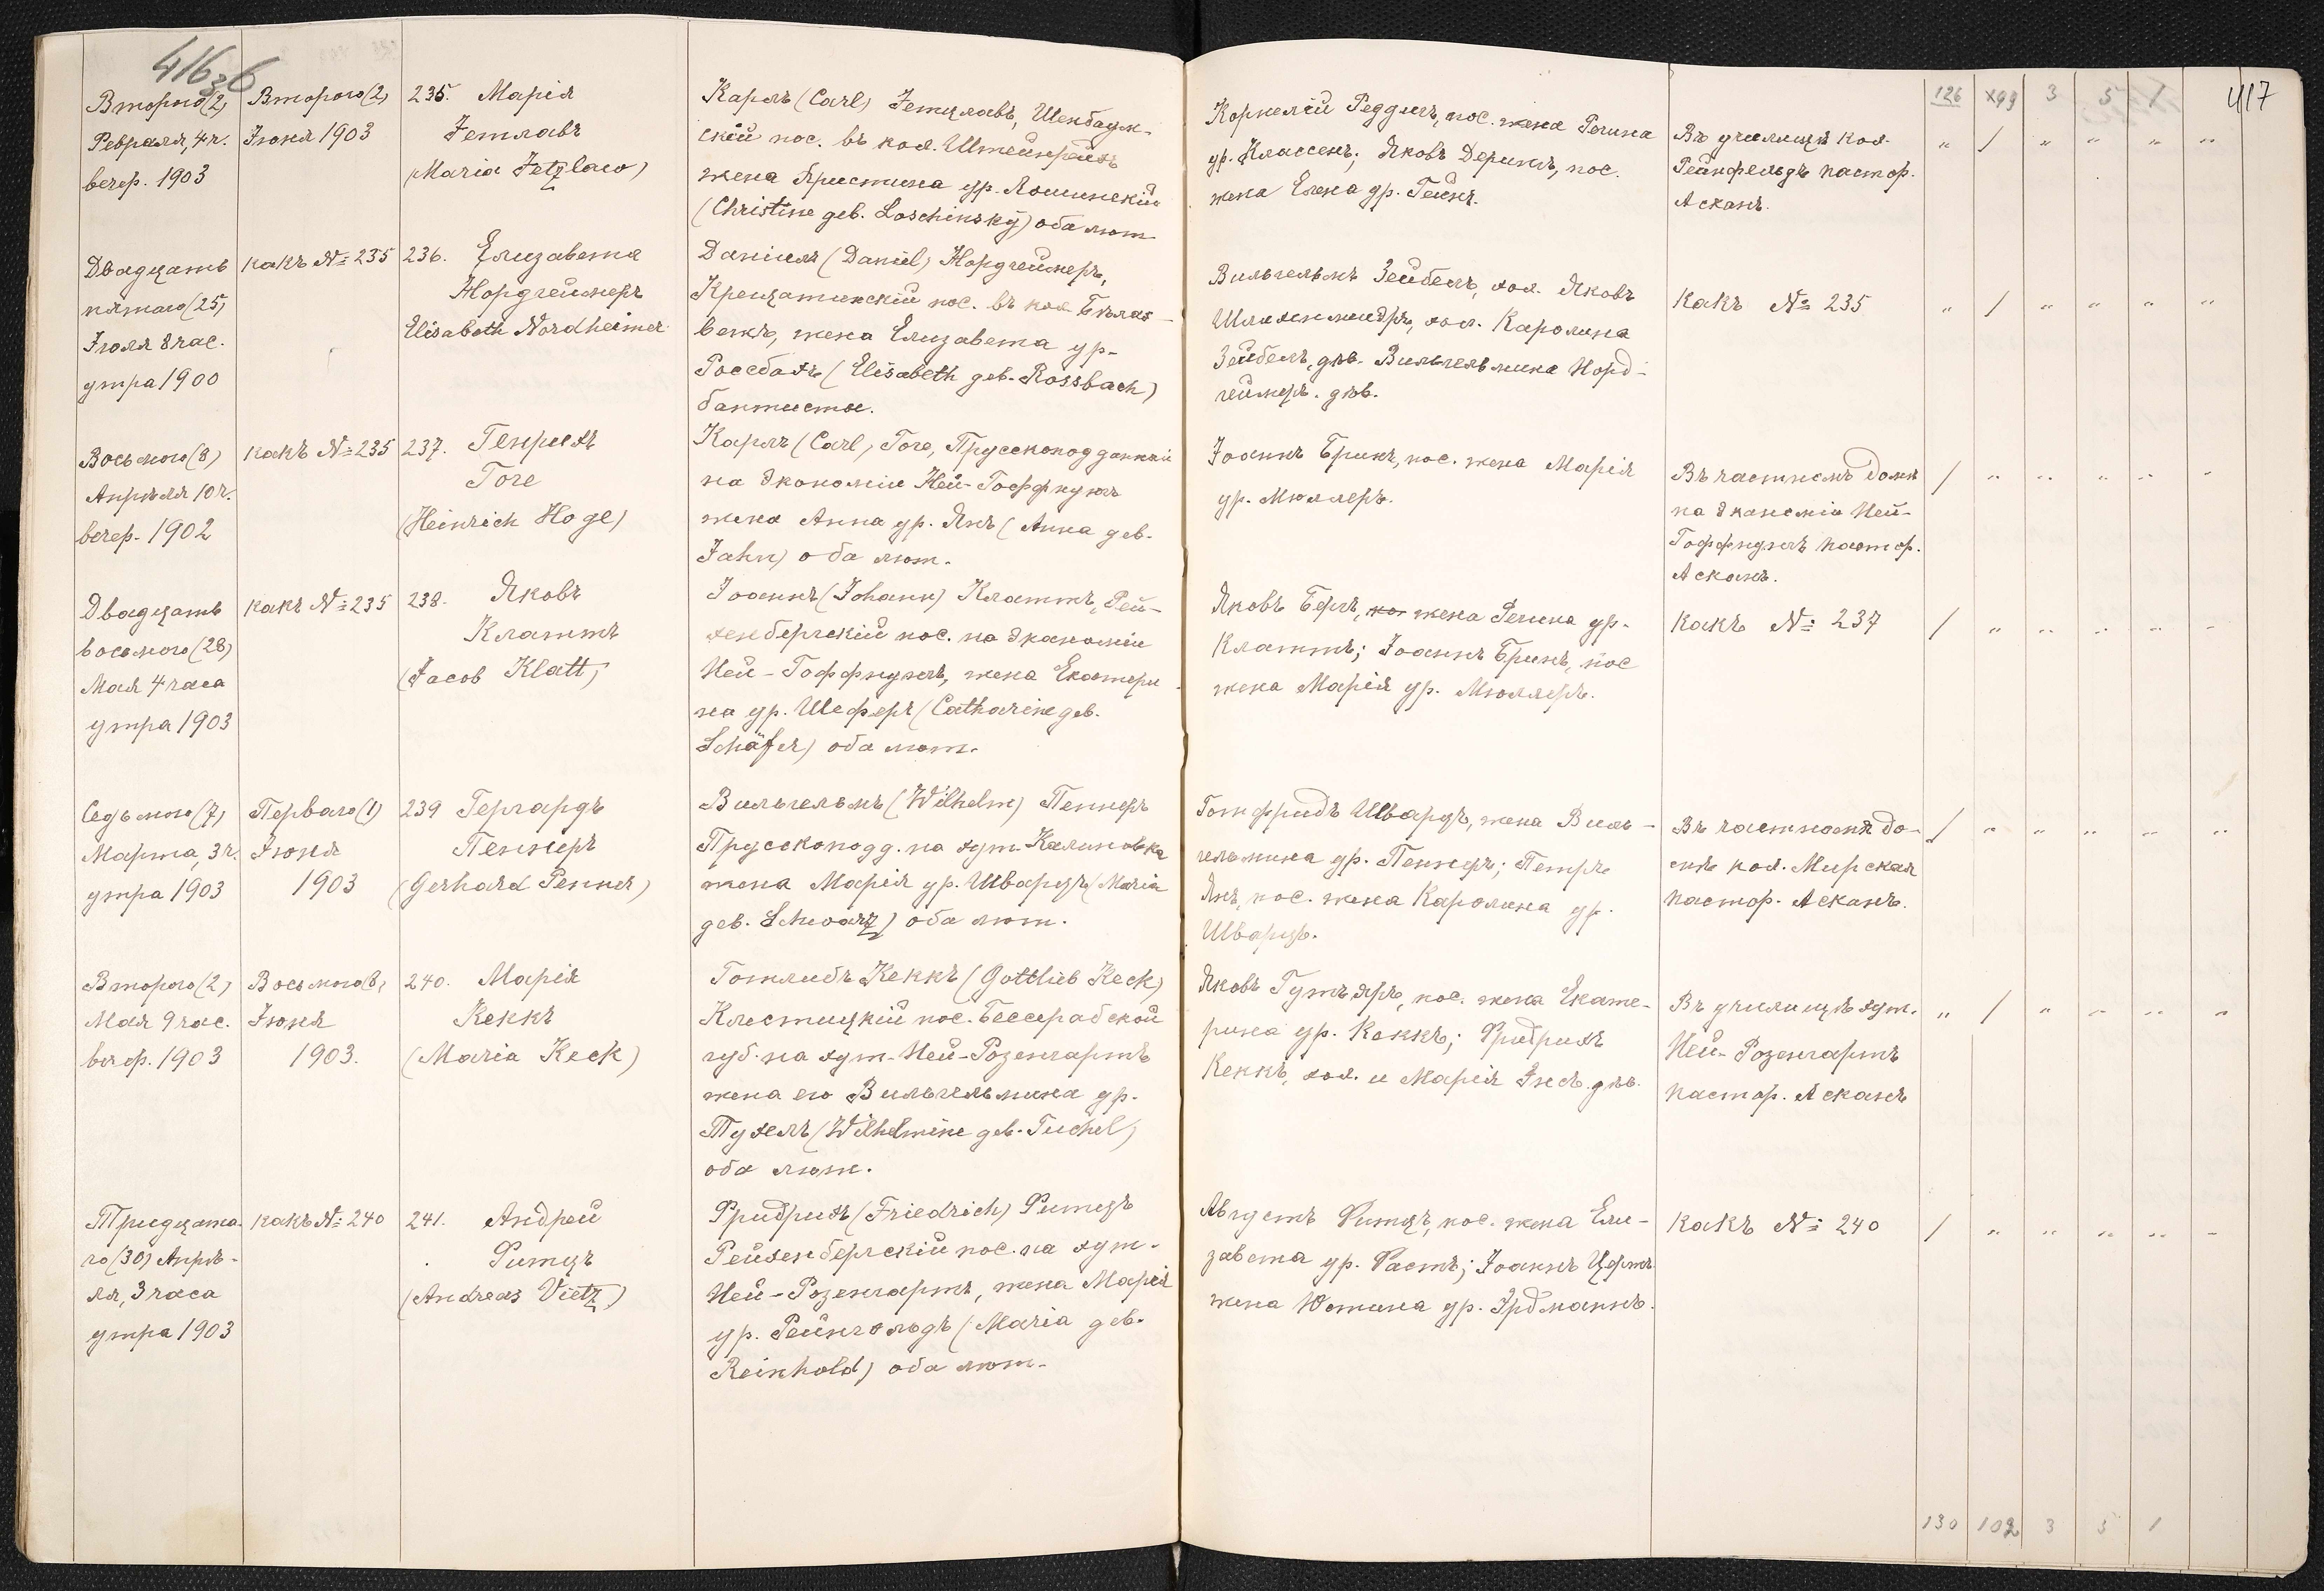 416
Второго (2)
Февраля, 4 ч.
вечер. 1903
Второго (2)
Іюня 1903
235. Марія
Іетлавъ
(Maria Jetzlaw)
Карлъ (Carl) Іетцлавъ,
скій пос. въ кол. Штейнрейхъ
жена Христина ур. Лошинскій
(Christine geb. Loschinsky) оба лют
Корнелій Реддигъ, пос. жена Регина
ур. Классенъ; Яковъ Дерикъ, пос.
жена Елена ур. Гейнъ.
Въ училищѣ кол.
Рейнфельдъ пастор.
Асканъ.
126 199 3 5 1
417
" / " " " "
Двадцать
пятаго (25)
Іюля 8 час.
утра 1900
какъ № 235
236. Елизавета
Нордгеймеръ
Elisabeth Nordheimer
Даніилъ (Daniel) Нордгеймеръ,
Крещатинскій пос. въ кол.
вежъ, жена Елизавета ур.
Россбахъ (Elisabeth geb. Rossbach)
баптисты.
Вильгельмъ Зейбель, хол. Яковъ
хол. Каролина
Зейбель, дѣв. Вильгельмина Норд-
геймеръ. дѣв.
Какъ № 235
" / " " " "
Восьмого (8)
Апрѣля 10 ч.
вечер. 1902
какъ № 235
237. Генрихъ
Гоге
(Heinrich Hoge)
Карлъ (Carl) Гоге, Прусскоподданный
на экономіи Ней-Гоффнунгъ
жена Анна ур. Янъ (Anna geb.
Jahn) оба лют.
Іоаннъ Брикъ, пос. жена Марія
ур. Мюллеръ.
Въ частномъ домѣ
на экономіи Ней-
Гоффнунгъ пастор.
Асканъ.
/ " " " " "
Двадцать
восьмого (28)
Мая 4 часа
утра 1903
какъ № 235
238. Яковъ
Клаттъ
(Jacob Klatt)
Іоаннъ (Johann) Клаттъ, Рей-
хенбергскій пос. на экономіи
Ней-Гоффнунгъ, жена Екатери
на ур. Шеферъ (Catharine geb.
Schäfer) оба лют.
Яковъ Бергъ, жена Регина ур.
Клаттъ; Іоаннъ Брикъ, пос
жена Марія ур. Мюллеръ.
Какъ № 237
/ " " " " "
Седьмого (7)
Марта, 3 ч.
утра 1903
Перваго (1)
Іюня
1903
239 Гергардъ
Пеннеръ
(Gerhard Penner)
Вильгельмъ (Wilhelm) Пеннеръ
Прусскоподд. на хут. Калиновка
жена Марія ур. Шварцъ (Maria
geb. Schwarz) оба лют.
Готфридъ Шварцъ, жена Виль-
гельмина ур. Пеннеръ; Петръ
Янъ, пос. жена Каролина ур.
Шварцъ.
Въ частномъ до-
мѣ кол. Мирская
пастор. Асканъ.
/ " " " " "
Второго (2)
Мая 9 час.
вечер. 1903
Восьмого (8)
Іюня
1903.
240. Марія
Кеккъ
(Maria Keck)
Готлибъ Кеккъ (Gottlieb Keck)
Клестицкій пос. Бессарабской
губ. на хут. Ней-Розенгартъ
жена его Вильгельмина ур.
Тухель (Wilhelmine geb. Tuchel)
оба лют.
Яковъ пос. жена Екате-
рина ур. Кеккъ; Фридрихъ
Кеккъ, хол. и Марія дѣв.
Въ училищѣ хут.
Ней-Розенгартъ
пастор. Асканъ
" / " " " "
Тридцата-
го (30) Апрѣ-
ля, 3 часа
утра 1903
какъ № 240
241. Андрей
Фитцъ
(Andreas Vietz)
Фридрихъ (Friedrich) Фитцъ
Рейхенбергскій пос. на хут.
Ней-Розенгартъ, жена Марія
ур. Рейнгольдъ (Maria geb.
Reinhold) оба лют.
Августъ Фитцъ, пос. жена Ели-
завета ур. Фастъ; Іоаннъ
жена Юстина ур. Эрдманнъ.
Какъ № 240
/ " " " " "
130 102 3 5 1